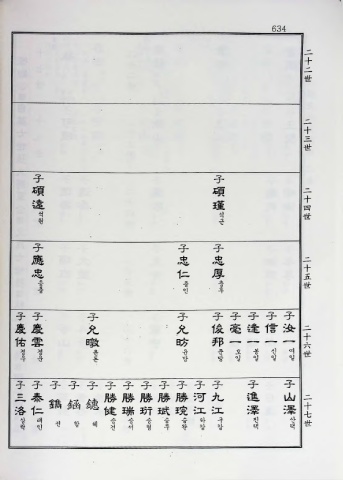 634
二十二世
二十三世
二十四世
子 碩瑾 석근
子 碩遠 석원
二十五世
子 忠厚 충후
子 忠仁 충인
子 應忠 응충
二十六世
子 汝一 여일
子 信一 신일
子 逢一 봉일
子 亳一 호일
子 俊邦 준방
子 允昉 윤방
子 允暾 윤돈
子 慶雲 경운
子 慶佑 경우
二十七世
子 山澤 산택
子 進澤 진택
子 九江 구강
子 河江 하강
子 勝琬 승완
子 勝珷 승무
子 勝珩 승형
子 勝瑞 승서
子 勝健 승건
子 鏸 혜
子 涵 함
子 鐫 전
子 泰仁 태인
子 三洛 삼락